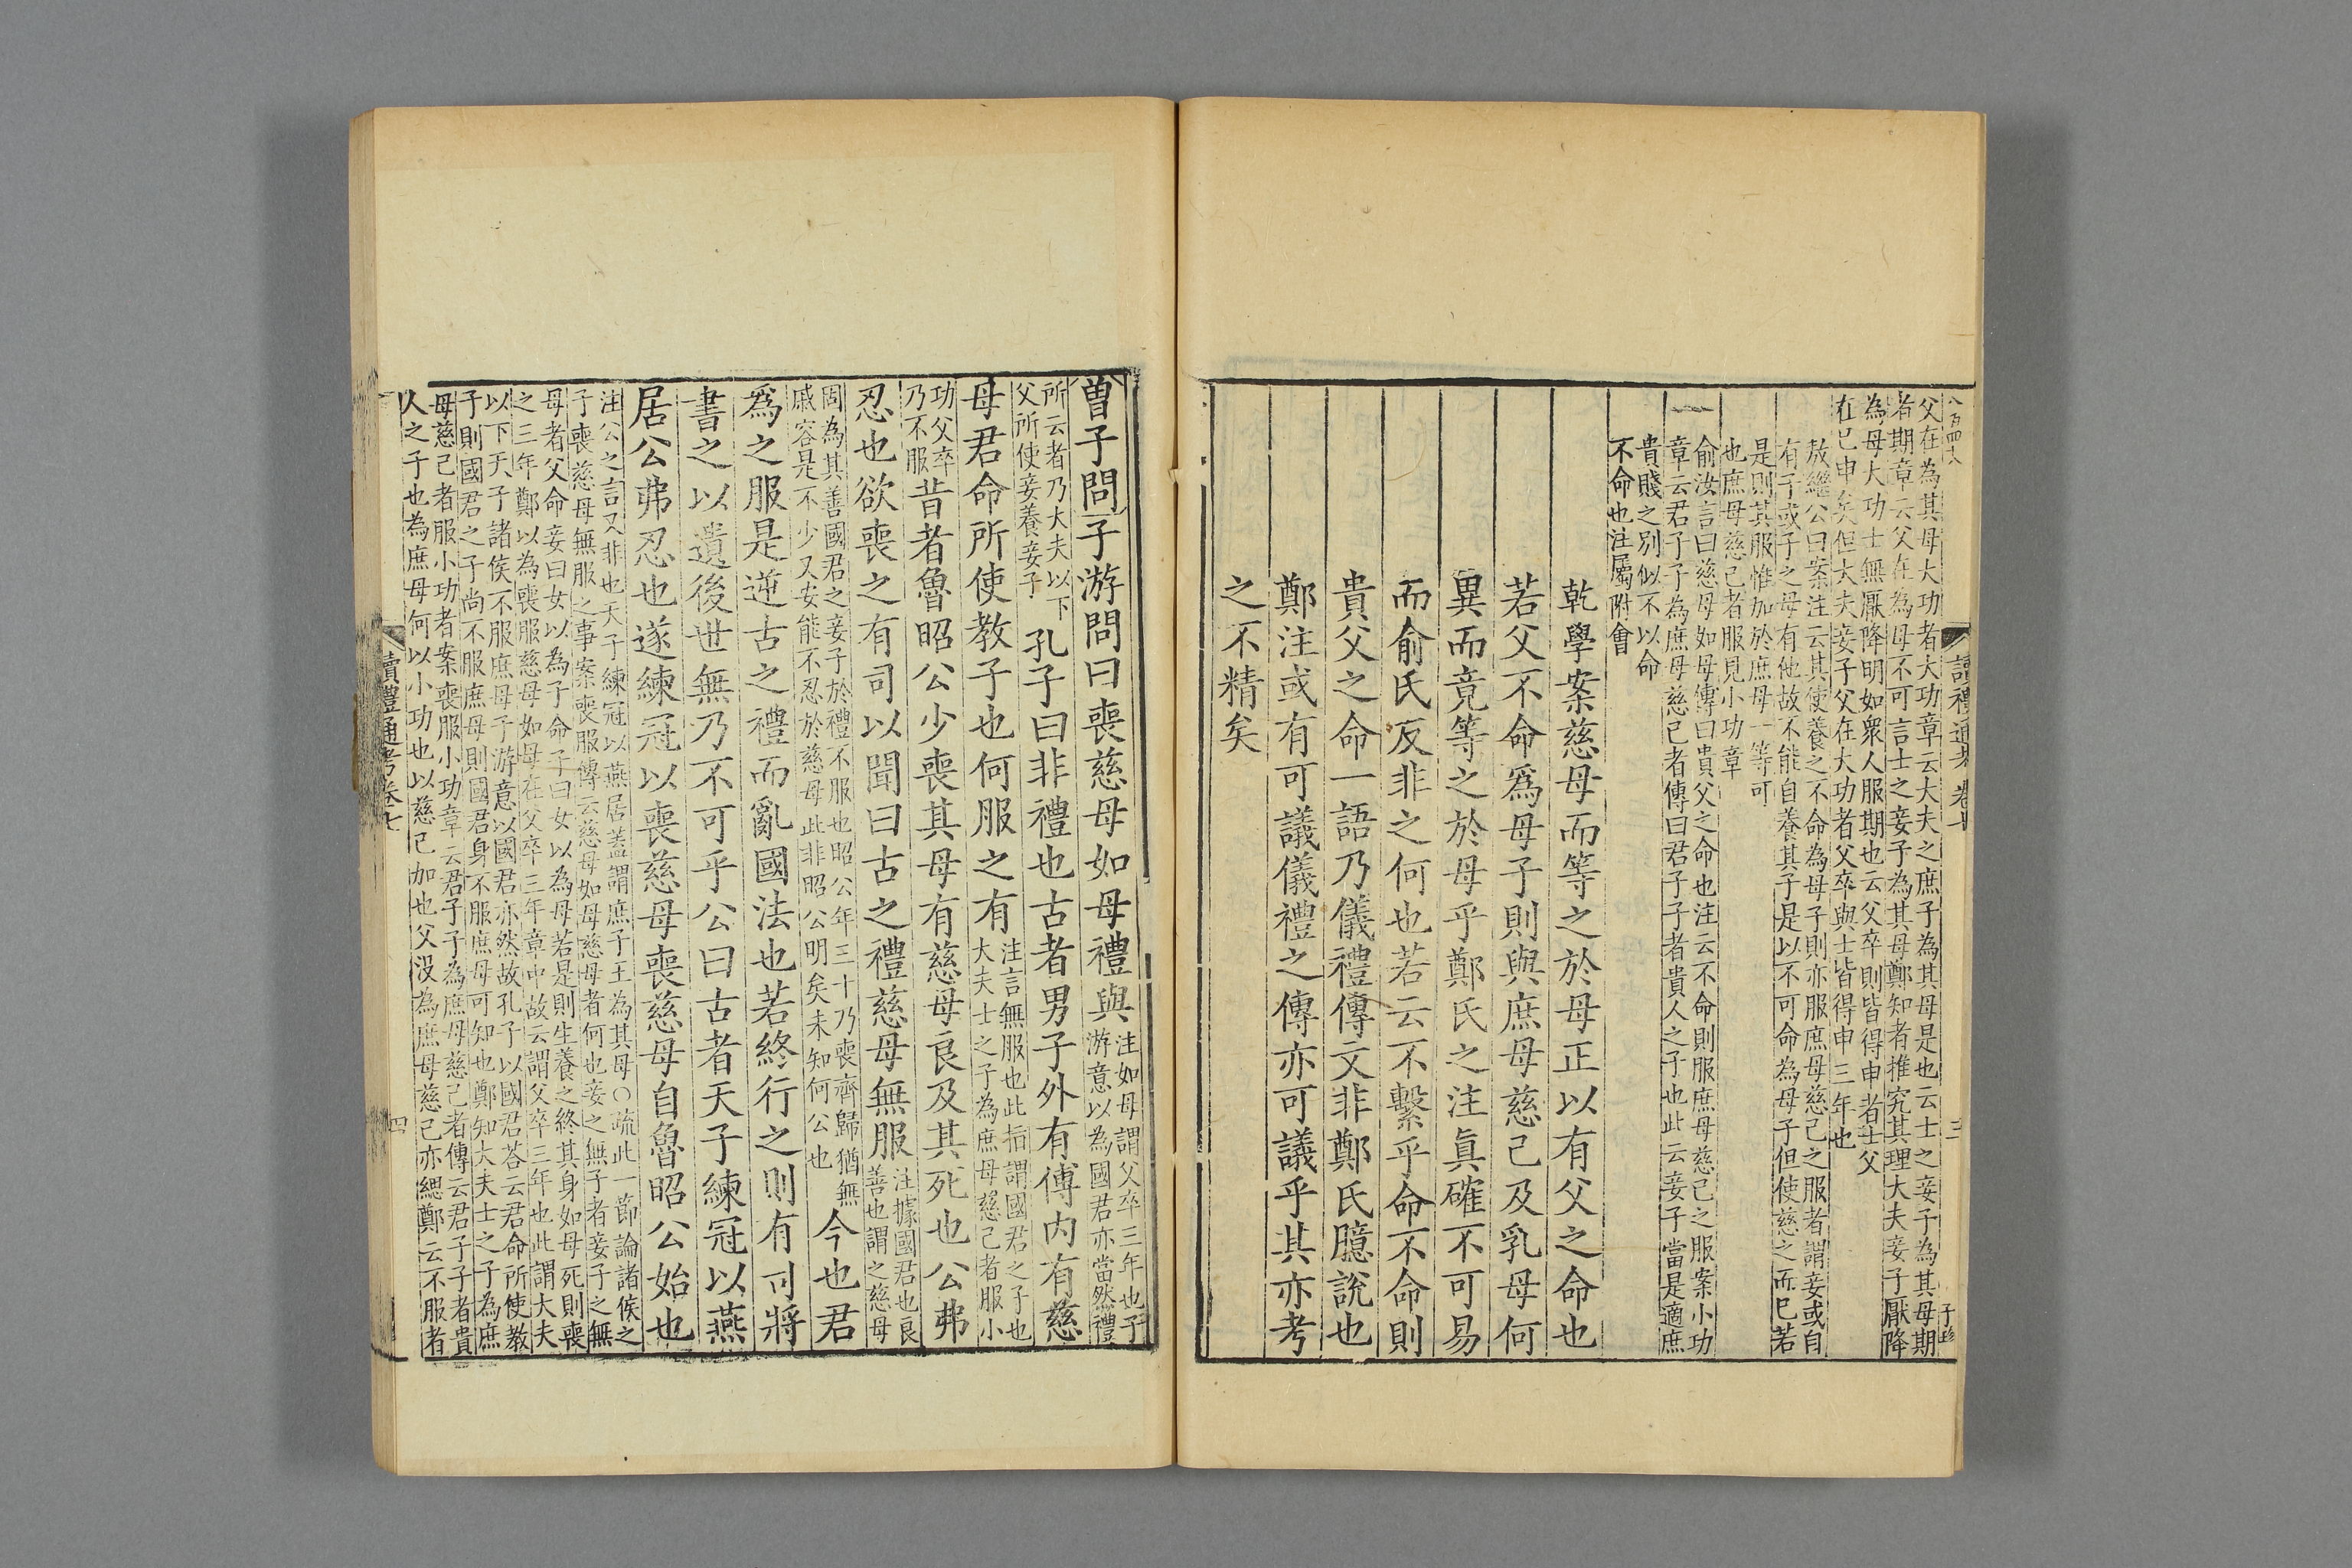 八百四十八
讀禮通考 卷七
三
父在為其母大功者大功章云大夫之庶子為其母是也云士之妾子為其母期
者期章云父在為母不可言士之妾子為其母鄭知者推究其理大夫妾子厭降
為母大功士無厭降明如衆人服期也云父卒則皆得申者士父
在已申矣但大夫妾子父在大功者父卒與士皆得申三年也
敖繼公曰案注云其使養之不命為母子則亦服庶母慈己之服者謂妾或自
有子或子之母有他故不能自養其子是以不可命為母子但使慈之而已若
是則其服惟加於庶母一等可
也庶母慈己者服見小功章
俞汝言曰慈母如母傳曰貴父之命也注云不命則服庶母慈己之服案小功
章云君子子為庶母慈己者傳曰君子子者貴人之子也此云妾子當是適庶
貴賤之別似不以命
不命也注屬附會
乾學案慈母而等之於母正以有父之命也
若父不命爲母子則與庶母慈己及乳母何
異而竟等之於母乎鄭氏之注眞確不可易
而俞氏反非之何也若云不繫乎命不命則
貴父之命一語乃儀禮傳文非鄭氏臆說也
鄭注或有可議儀禮之傳亦可議乎其亦考
之不精矣
曾子問子游問曰喪慈母如母禮與
注如母謂父卒三年也子
游意以為國君亦當然禮
所云者乃大夫以下
父所使妾養妾子
孔子曰非禮也古者男子外有傅内有慈
母君命所使教子也何服之有
注言無服也此指謂國君之子也
大夫士之子為庶母慈己者服小
功父卒
乃不服
昔者魯昭公少喪其母有慈母良及其死也公弗
忍也欲喪之有司以聞曰古之禮慈母無服
注據國君也良
善也謂之慈母
固為其善國君之妾子於禮不服也昭公年三十乃喪齊歸猶無
戚容是不少又安能不忍於慈母此非昭公明矣未知何公也
今也君
爲之服是逆古之禮而亂國法也若終行之則有司將
書之以遺後世無乃不可乎公曰古者天子練冠以燕
居公弗忍也遂練冠以喪慈母喪慈母自魯昭公始也
注公之言又非也天子練冠以燕居蓋謂庶子王為其母○疏此一節論諸侯之
子喪慈母無服之事案喪服傳云慈母如母慈母者何也妾之無子者妾子之無
母者父命妾曰女以為子命子曰女以為母若是則生養之終其身如母死則喪
之三年鄭以為喪服慈母如母在父卒三年章中故云謂父卒三年也此謂大夫
以下天子諸侯不服庶母子游意以國君亦然故孔子以國君荅云君命所使教
子則國君之子尚不服庶母則國君身不服庶母可知也鄭知大夫士之子為庶
母慈己者服小功者案喪服小功章云君子子為庶母慈己者傳云君子子者貴
人之子也為庶母何以小功也以慈己加也父没為庶母慈己亦緦鄭云不服者
讀禮通考卷七
四